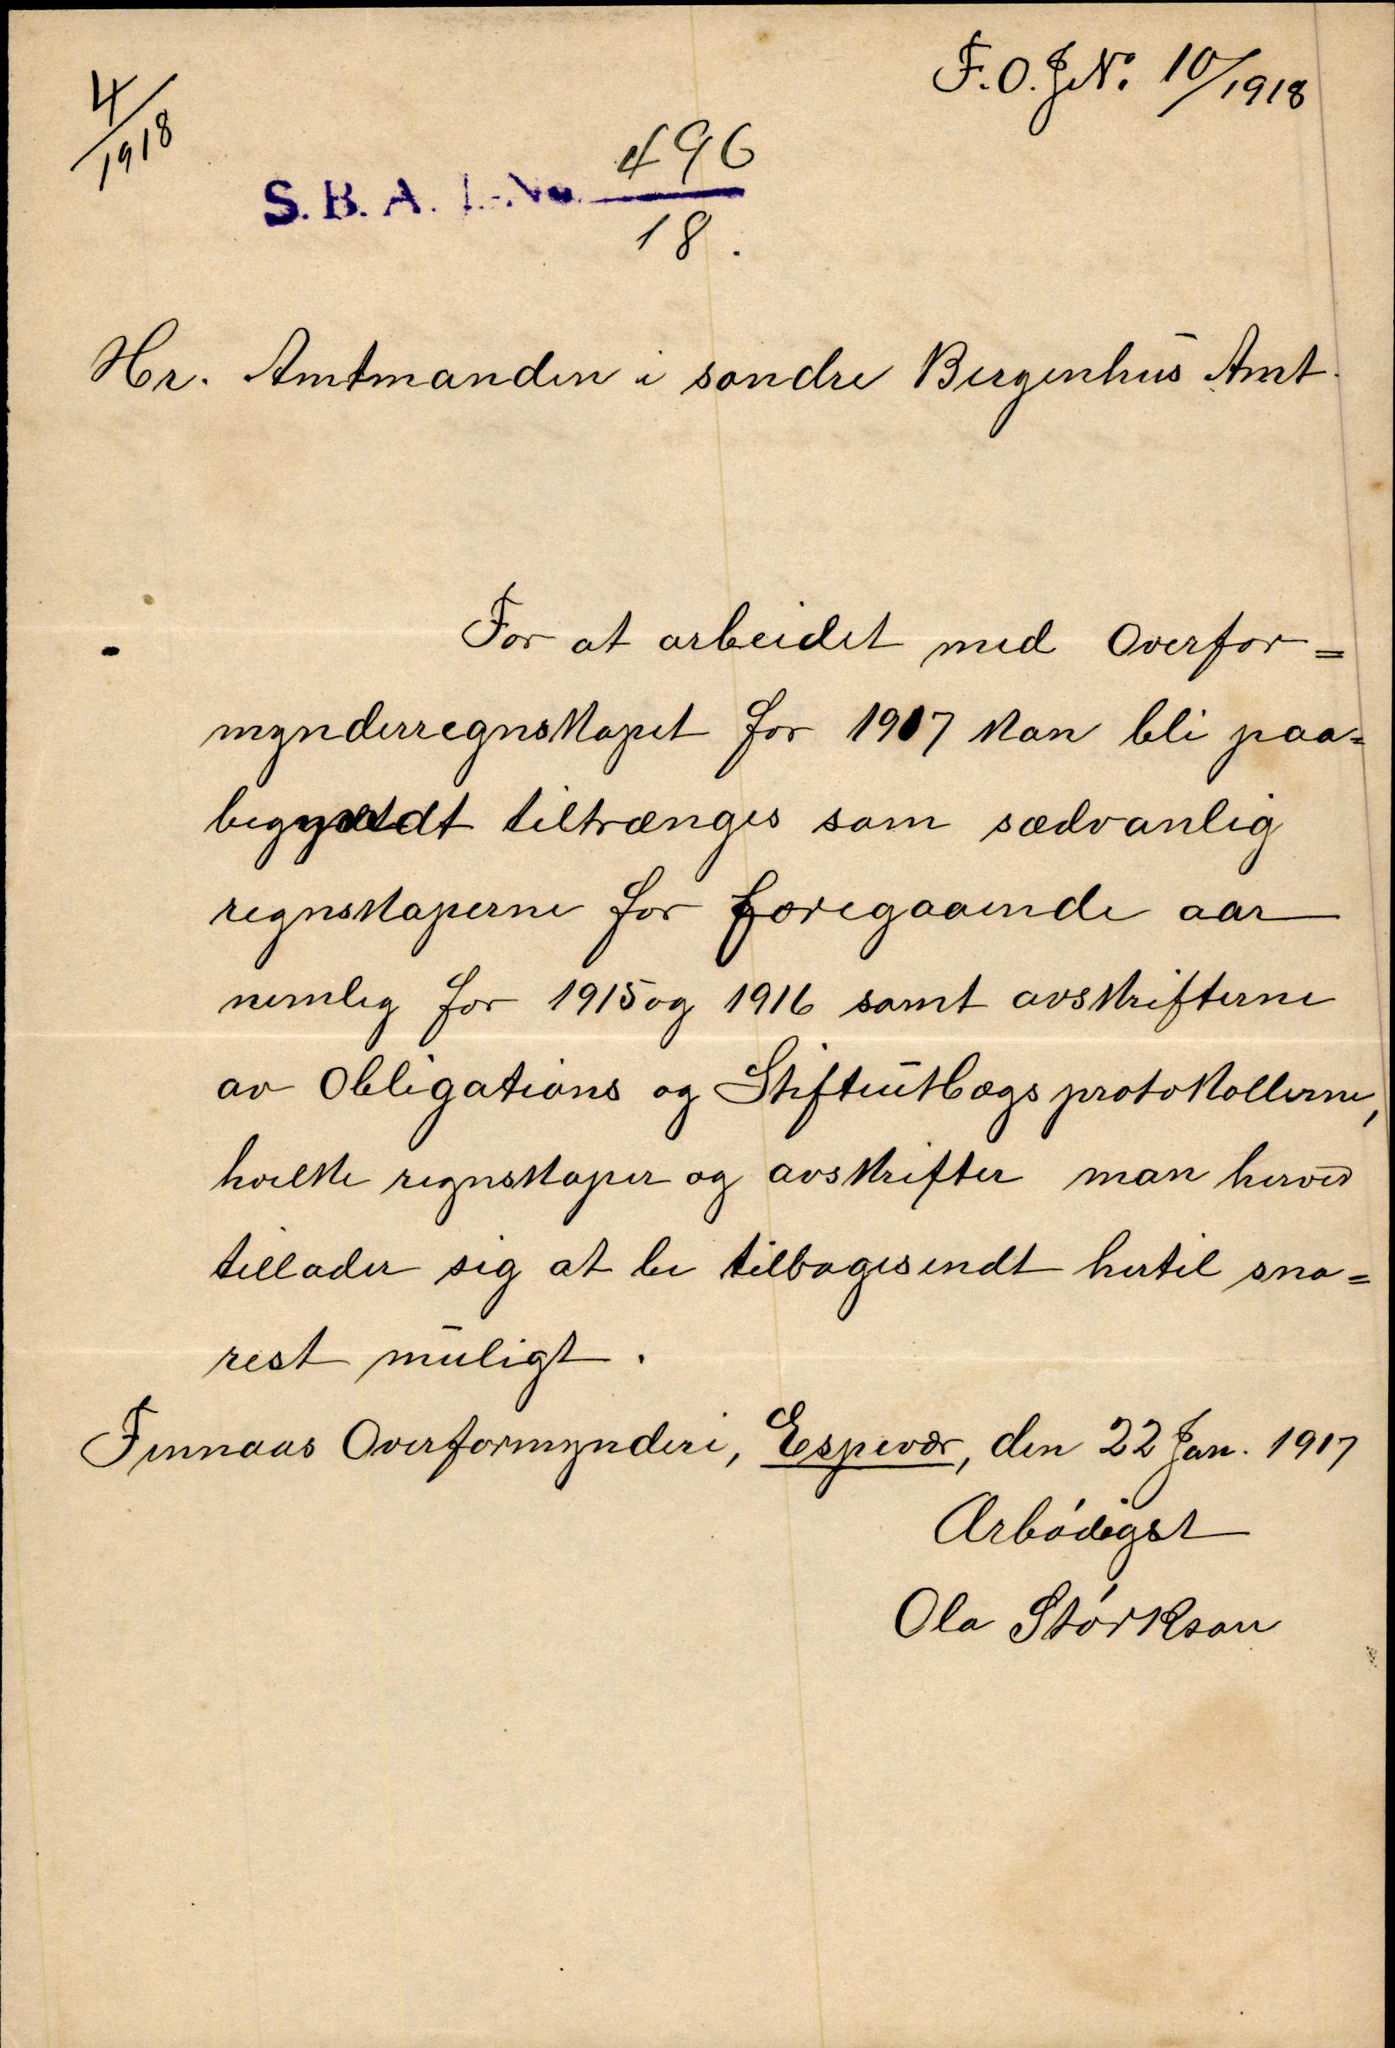 4/1918
F.O.J.No. 10/1918
S.B.A. J.-No. 496
18.
Hr. Amtmanden i søndre Bergenhus Amt.
For at arbeidet med Overfor=
mynderregnskapet for 1917 kan bli paa=
begyndt tiltrænges som sædvanlig
regnskaperne for foregaaende aar
nemlig for 1915 og 1916 samt avskrifterne
av Obligations og Skifteutlægsprotokollerne,
hvilke regnskaper og avskrifter man herved
tillader sig at be tilbagesendt hertil sna=
rest muligt.
Finnaas Overformynderi, Espevær, den 22 Jan. 1917
Ærbødigst
Ola Størkson